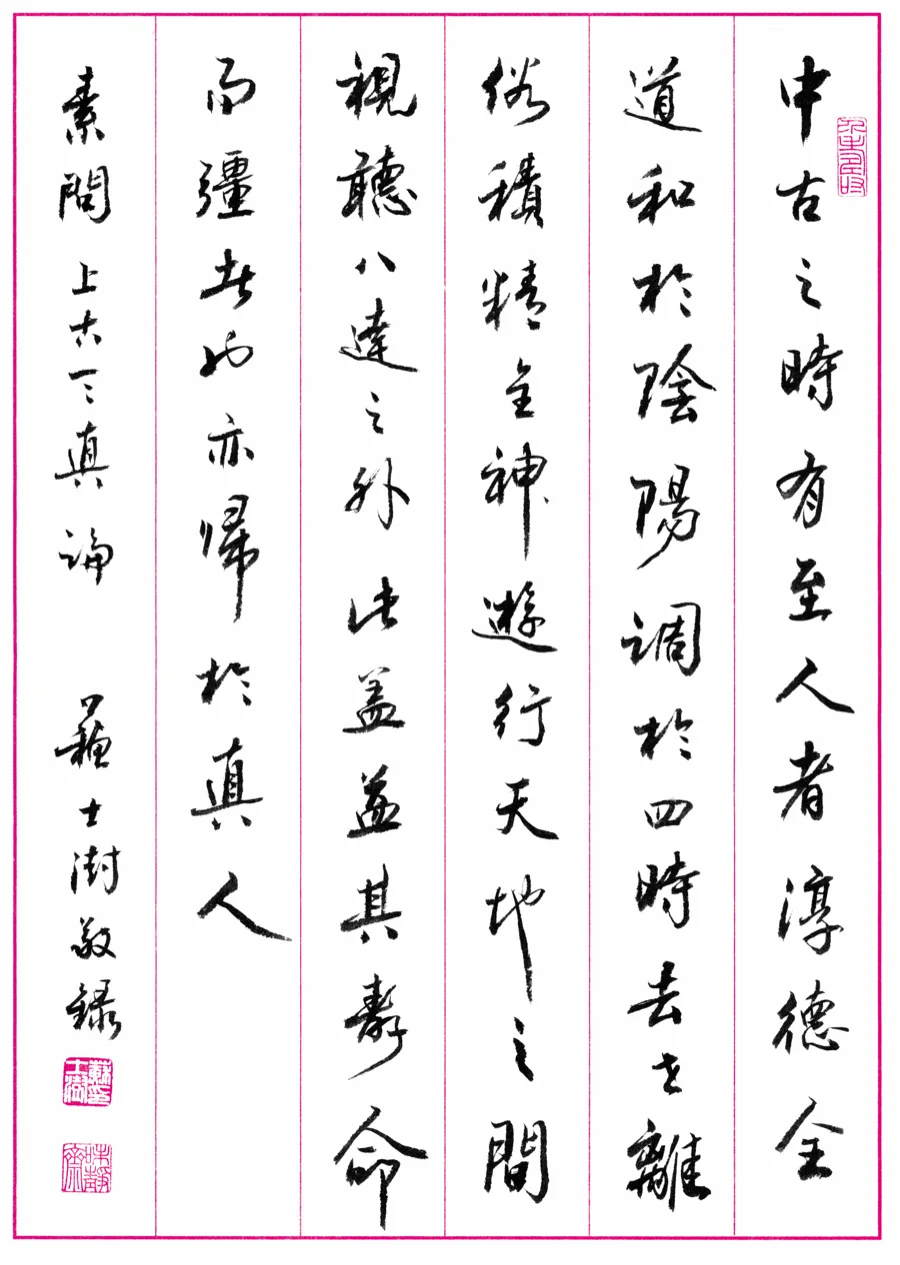 中古之時有至人者淳德全
道和於陰陽調於四時去世離
俗積精全神遊行天地之間
視聽八達之外此蓋益其壽命
而彊者也亦歸於真人
素問 上古天真論 蘇士澍敬錄
蘇士澍印